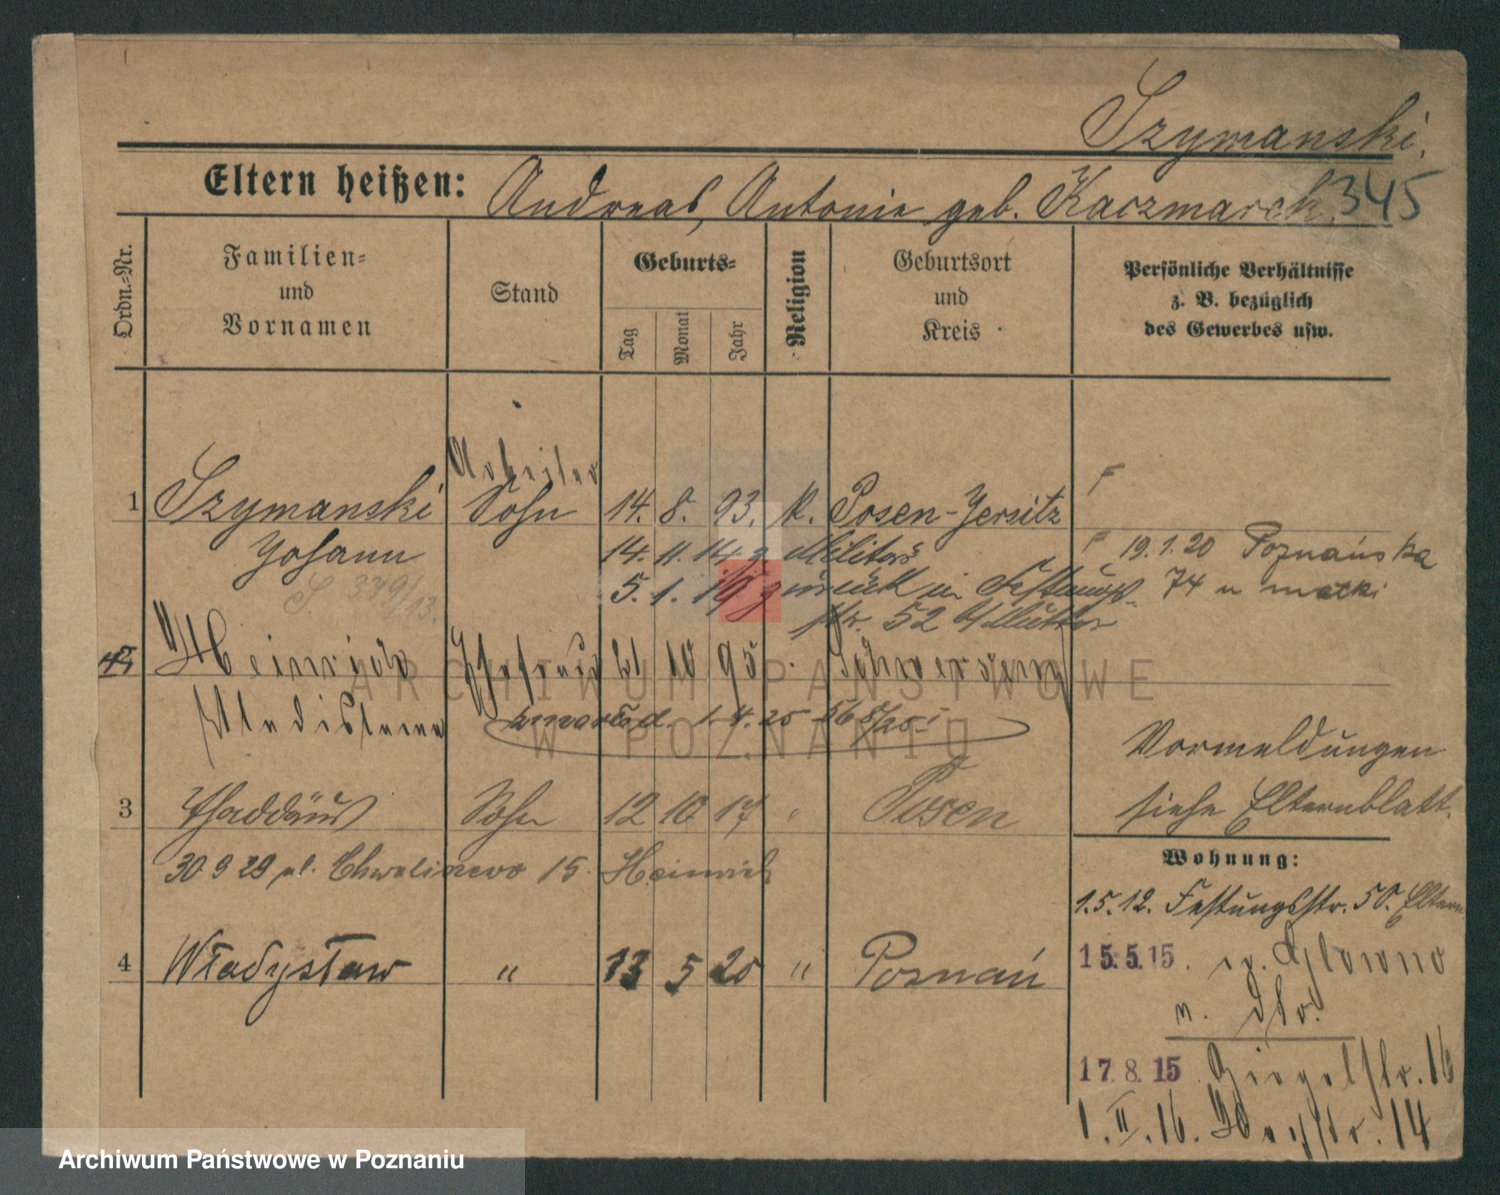 Szymanski.
Eltern heißen: Andreas, Antonie geb. Kaczmarek 345
Ordn.-Nr.
Familien-
und
Vornamen
Stand
Geburts-
Tag
Monat
Jahr
Religion
Geburtsort
und
Kreis
Persönliche Verhältnisse
z. B. bezüglich
des Gewerbes usw.
Arbeiter
1 Szymanski Sohn 14. 8. 93. k. Posen-Jersitz
Johann 14. 11. 14 z Militär
19.1.20 Poznańska
S. 349/13. 5. 1. 15 zurück in Festungs-
74 u matki
str. 52 Mutter
Heinrich Ehefrau 21 10 95 Schwersenz
Wladislawa
zmarł d. 1. 4. 25
Vormeldungen
siehe Elternblatt.
3 Thaddäus Sohn 12 10 17 " Posen
Wohnung:
30 9 29 pl. Chwaliszewo 15 Heinrich
1.5.12. Festungsstr. 50. Eltern
4 Władysław " 13 5 20 " Poznań
15.5.15. Glowno
n.
17.8.15 Ziegelstr. 16
1. II. 16. 14
ARCHIWUM PAŃSTWOWE
W POZNANIU
Archiwum Państwowe w Poznaniu